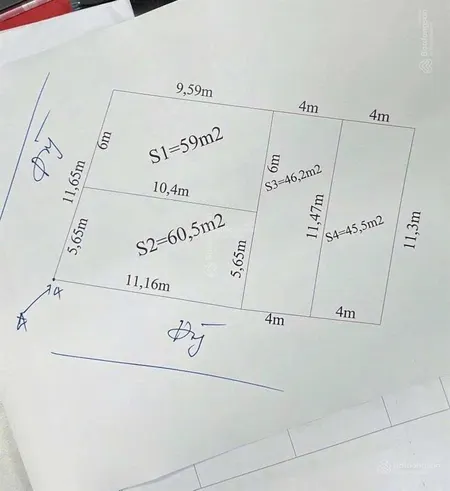 9,59m
4m
4m
6m
S1=59m2
6m
S3=46,2m2
11,65m
10,4m
11,47m
S4=45,5m2
11,3m
5,65m
S2=60,5m2
5,65m
11,16m
4m
4m